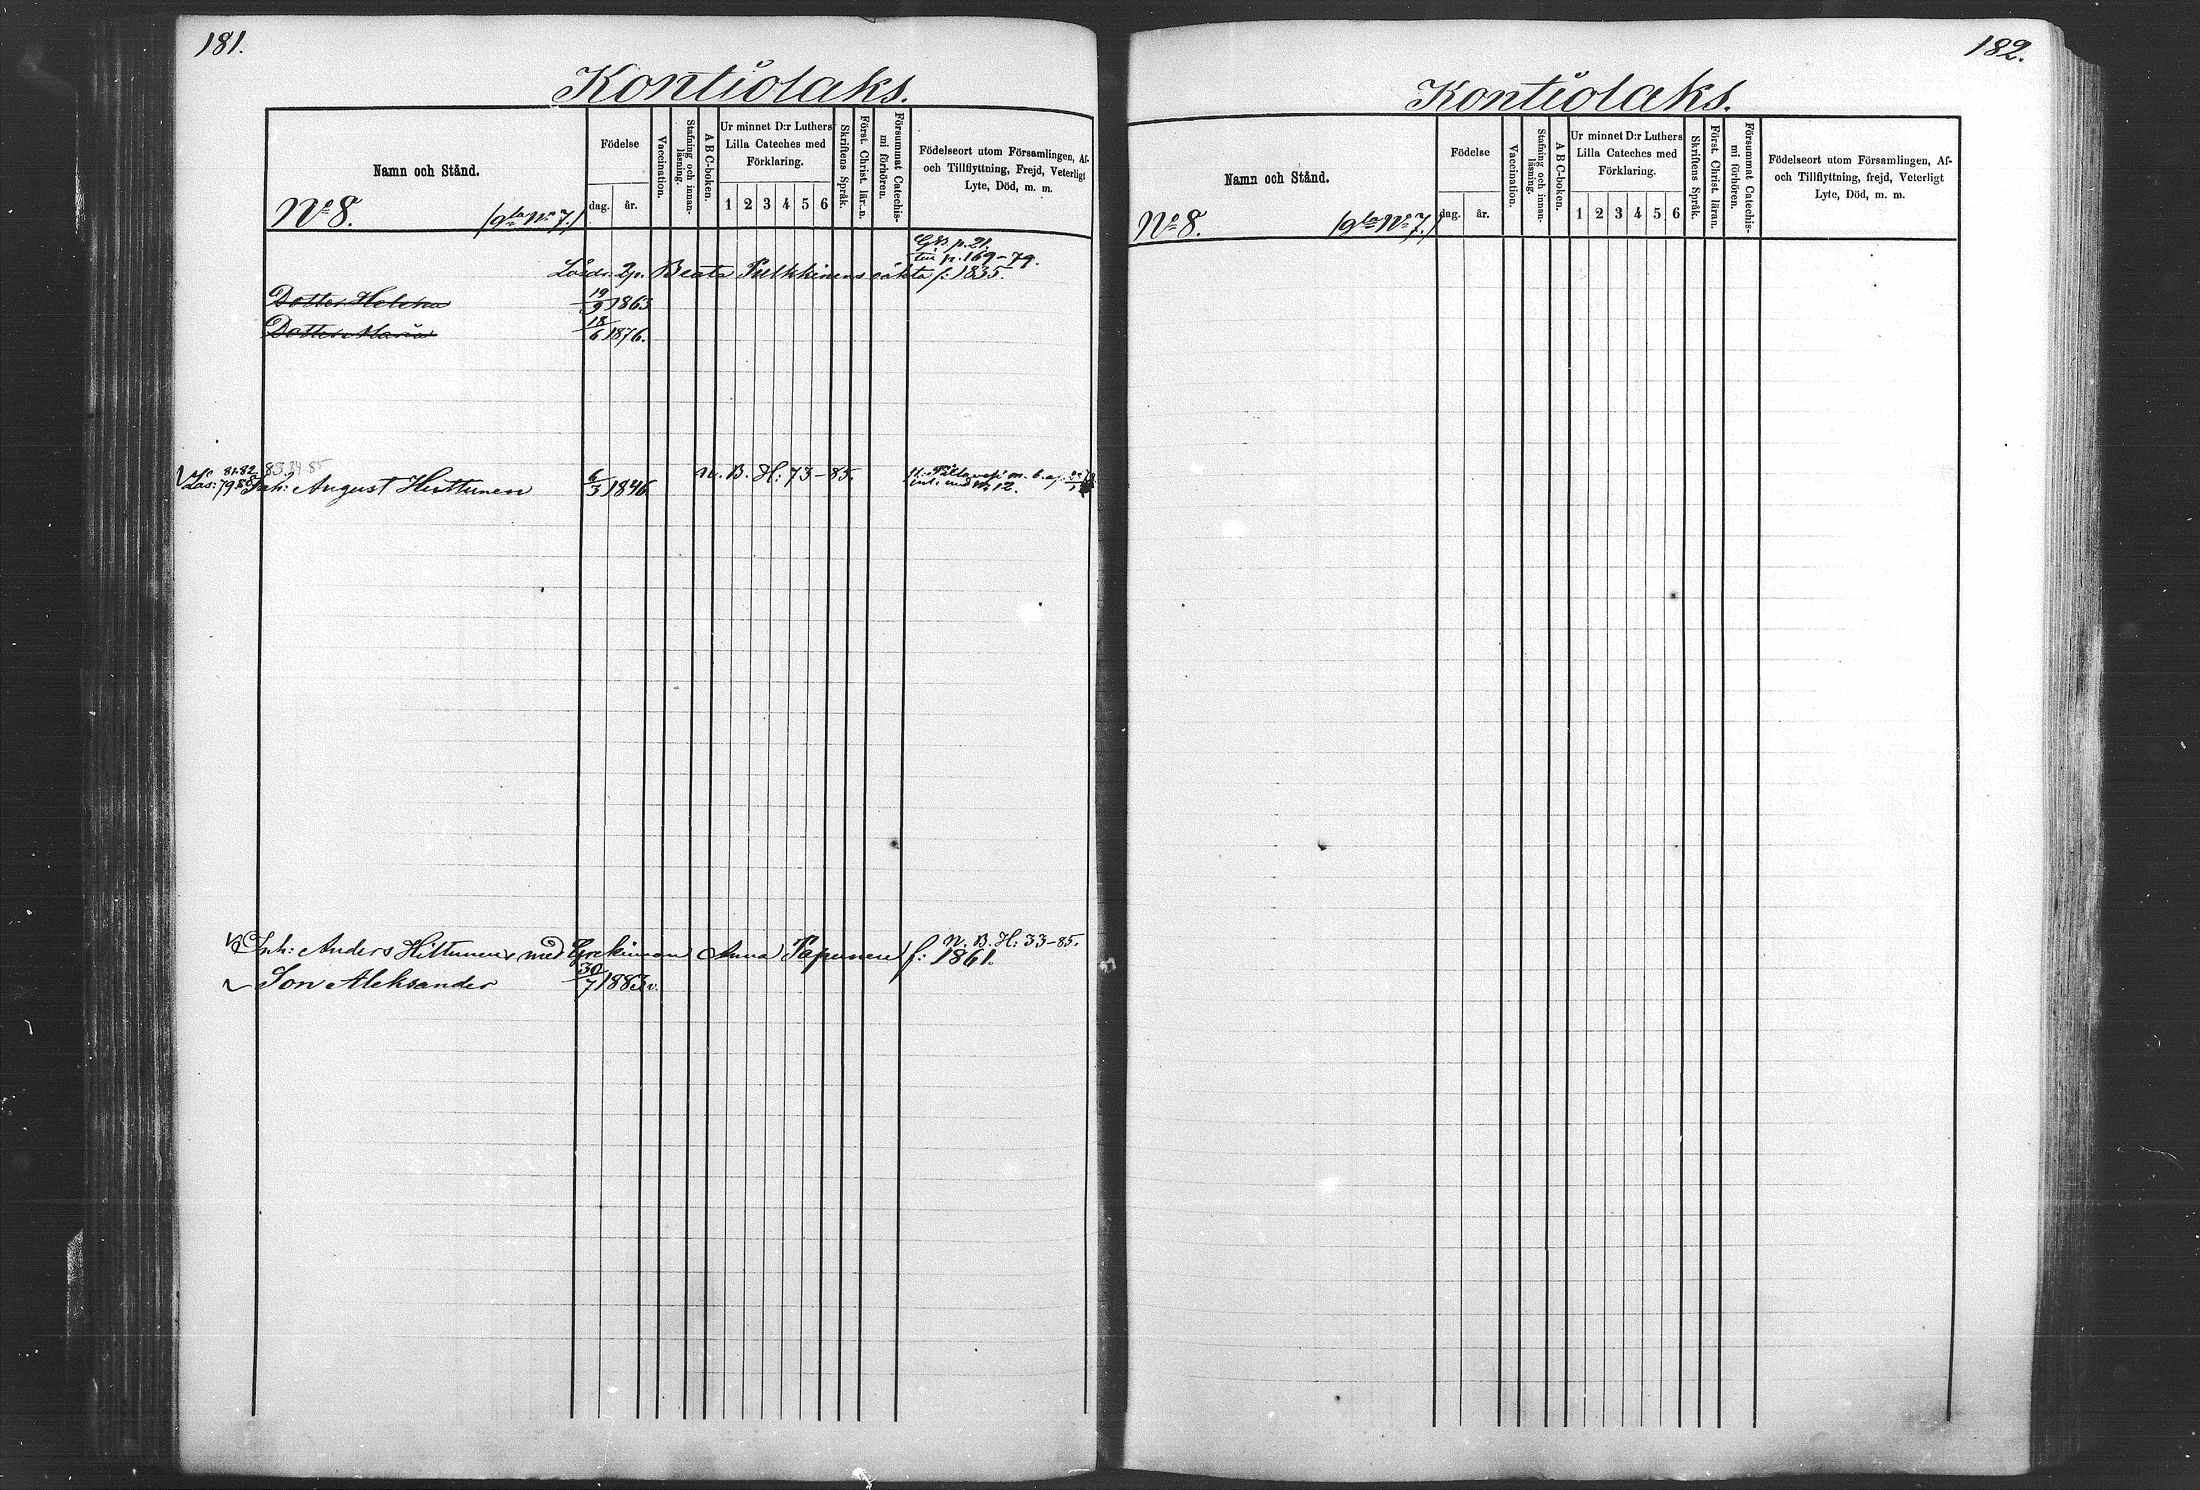 181.
Kontiolaks.
Namn och Stånd.
Födelse
dag. år.
Vaccination.
Stafning och innan-
läsning.
A B C-boken.
Ur minnet D:r Luthers
Lilla Cateches med
Förklaring.
1 2 3 4 5 6
Skriftens Språk.
Först. Christ. läran.
Försummat Catechis-
mi förhören.
Födelseort utom Församlingen, Af-
och Tillflyttning, Frejd, Veterligt
Lyte, Död, m. m.
No 8. (gla No 7.)
p. 21.
p. 169-79.
Lösdr. 2p. Beata Pulkkinens oäkta f: 1835.
Dotter Helena 19/9 1863
Dotter Maria 18/6 1876.
81.82 83.84.85
Inh: August Huttunen 6/3 1846 N. B. H: 73-85.
N. B. H: 33-85.
Inh: Anders Hiltunen med Grekinnan Anna Papunen f: 1861.
Son Aleksander 30/7 1883 v.
182.
Kontiolaks.
Namn och Stånd.
Födelse
dag. år.
Vaccination.
Stafning och innan-
läsning.
A B C-boken.
Ur minnet D:r Luthers
Lilla Cateches med
Förklaring.
1 2 3 4 5 6
Skriftens Språk.
Först. Christ. läran.
Försummat Catechis-
mi förhören.
Födelseort utom Församlingen, Af-
och Tillflyttning, frejd, Veterligt
Lyte, Död, m. m.
No 8. (gla No 7.)